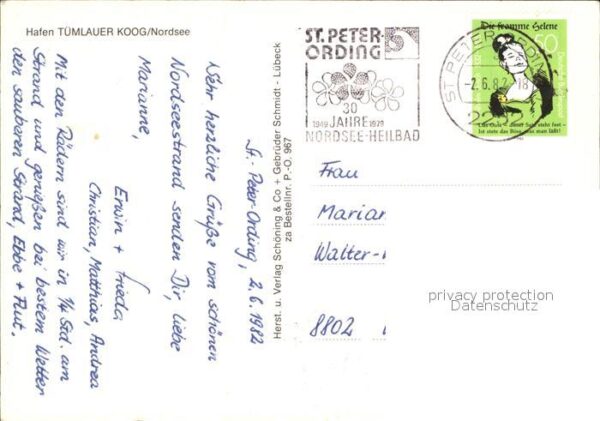 Hafen TÜMLAUER KOOG/Nordsee
St.-Peter-Ording, 2.6.1982
Sehr herzliche Grüße vom schönen
Nordseestrand senden Dir, liebe
Marianne,
Erwin + Frieda
Christian, Matthias, Andrea
Mit den Rädern sind wir in 1/4 Std. am
Strand und genießen bei bestem Wetter
den sauberen Strand, Ebbe + Flut.
Herst. u. Verlag Schöning & Co + Gebrüder Schmidt - Lübeck
za Bestellnr. P.-O. 967
ST. PETER-
ORDING
30
1949 JAHRE 1979
NORDSEE-HEILBAD
ST PETER-ORDING
-2.6.82-18
2252
Die fromme Helene
50
Das Gute - dieser Satz steht fest -
Ist stets das Böse, was man läßt!
Frau
Marian
Walter-
8802
privacy protection
Datenschutz